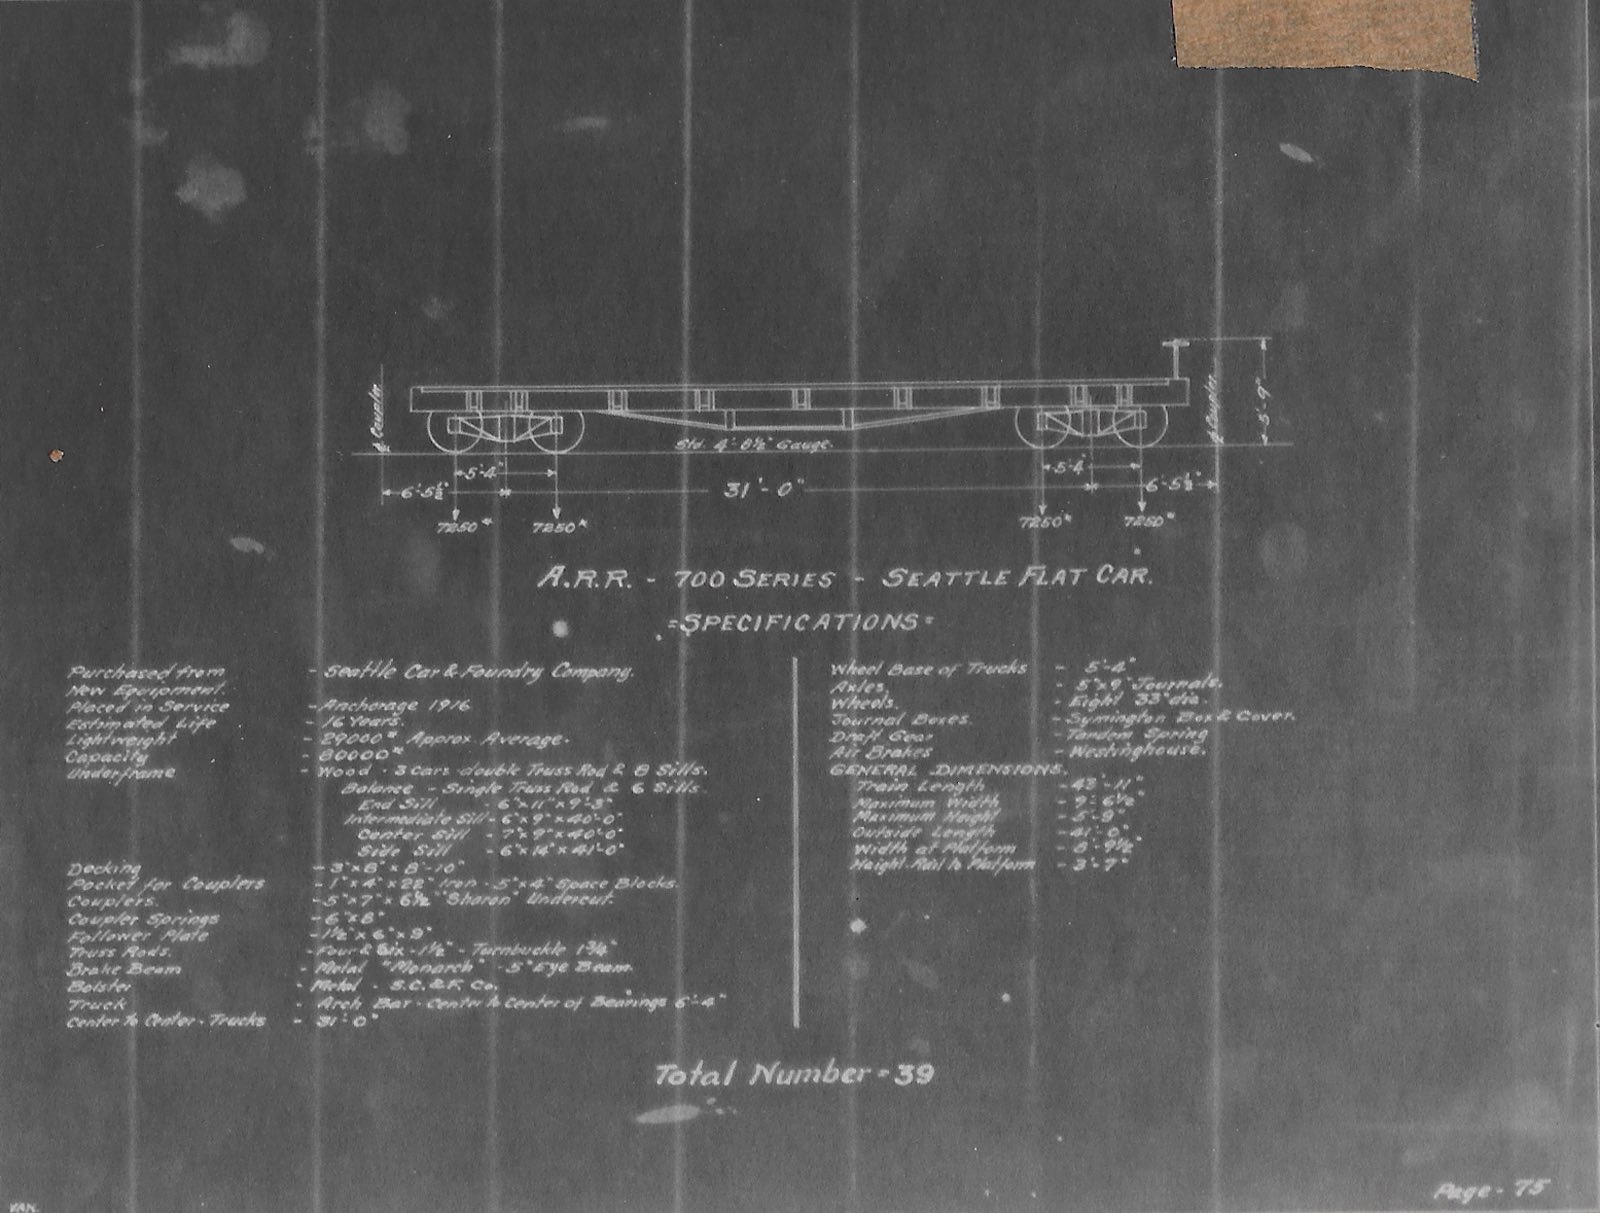 ℄ Coupler
℄ Coupler
5'-9"
Std. 4'-8½" Gauge.
5'-4" 5'-4"
6'-5½" 31'-0" 6'-5½"
7250# 7250# 7250# 7250#
A.R.R. - 700 SERIES - SEATTLE FLAT CAR.
=SPECIFICATIONS=
Purchased from - Seattle Car & Foundry Company.
New Equipment.
Placed in Service - Anchorage 1916
Estimated Life - 16 Years.
Lightweight - 29000# Approx. Average.
Capacity - 80000#
Underframe - Wood - 3 Cars - double Truss Rod & 8 Sills.
Balance - Single Truss Rod & 6 Sills.
End Sill - 6"x11"x9'-3"
Intermediate Sill - 6"x9"x40'-0"
Center Sill - 7"x9"x40'-0"
Side Sill - 6"x14"x41'-0"
Decking - 3"x8"x8'-10"
Pocket for Couplers - 1"x4"x22" Iron - 5"x4" Space Blocks.
Couplers. - 5"x7"x6½" "Sharon" Undercut.
Coupler Springs - 6"x8"
Follower Plate - 1½"x6"x9"
Truss Rods. - Four & Six - 1½" - Turnbuckle 1¾"
Brake Beam - Metal "Monarch" - 5" Eye Beam.
Bolster - Metal - S.C. & F. Co.
Truck - Arch Bar - Center to Center of Bearings 6'-4"
Center to Center - Trucks - 31'-0"
Wheel Base of Trucks - 5'-4"
Axles. - 5"x9" Journals.
Wheels. - Eight 33" dia.
Journal Boxes. - Symington Box & Cover.
Draft Gear - Tandem Spring
Air Brakes - Westinghouse.
GENERAL DIMENSIONS.
Train Length - 43'-11"
Maximum Width - 9'-6½"
Maximum Height - 5'-9"
Outside Length - 41'-0"
Width at Platform - 8'-9½"
Height-Rail to Platform - 3'-7"
Total Number = 39
Page - 75
VAN.